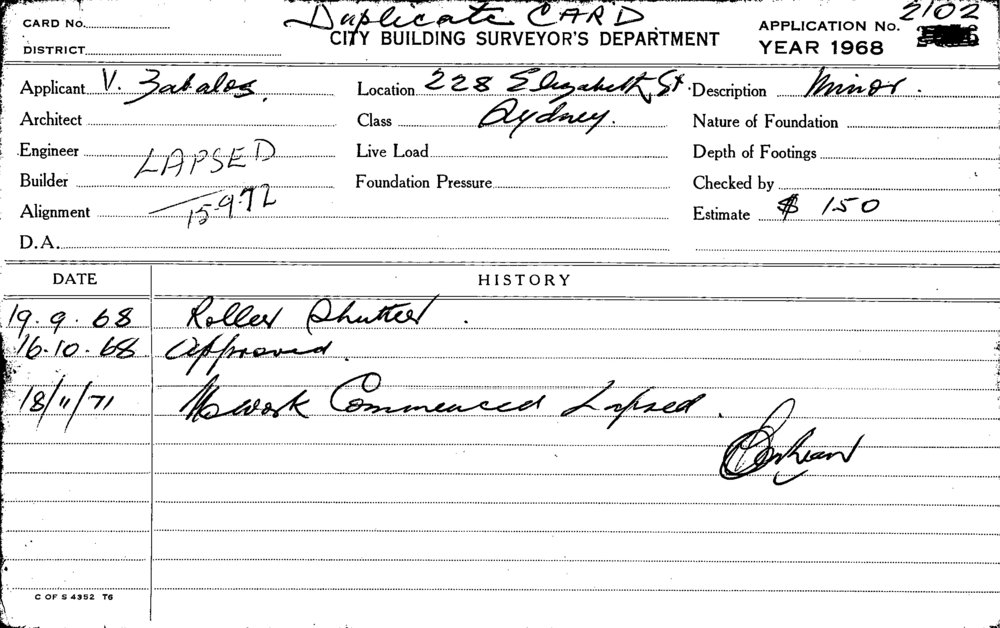 CARD No.
Duplicate CARD
APPLICATION No. 2102
DISTRICT
CITY BUILDING SURVEYOR'S DEPARTMENT
YEAR 1968
Applicant V. Zakalos
Location 228 Elizabeth St.
Description Minor.
Architect
Class Sydney.
Nature of Foundation
Engineer
LAPSED
Live Load
Depth of Footings
Builder
Foundation Pressure
Checked by
Alignment
15-9-72
Estimate $ 150
D.A.
DATE HISTORY
19.9.68 Roller Shutter.
16.10.68 Approved.
18/11/71 No work Commenced Lapsed.
C OF S 4352 T6